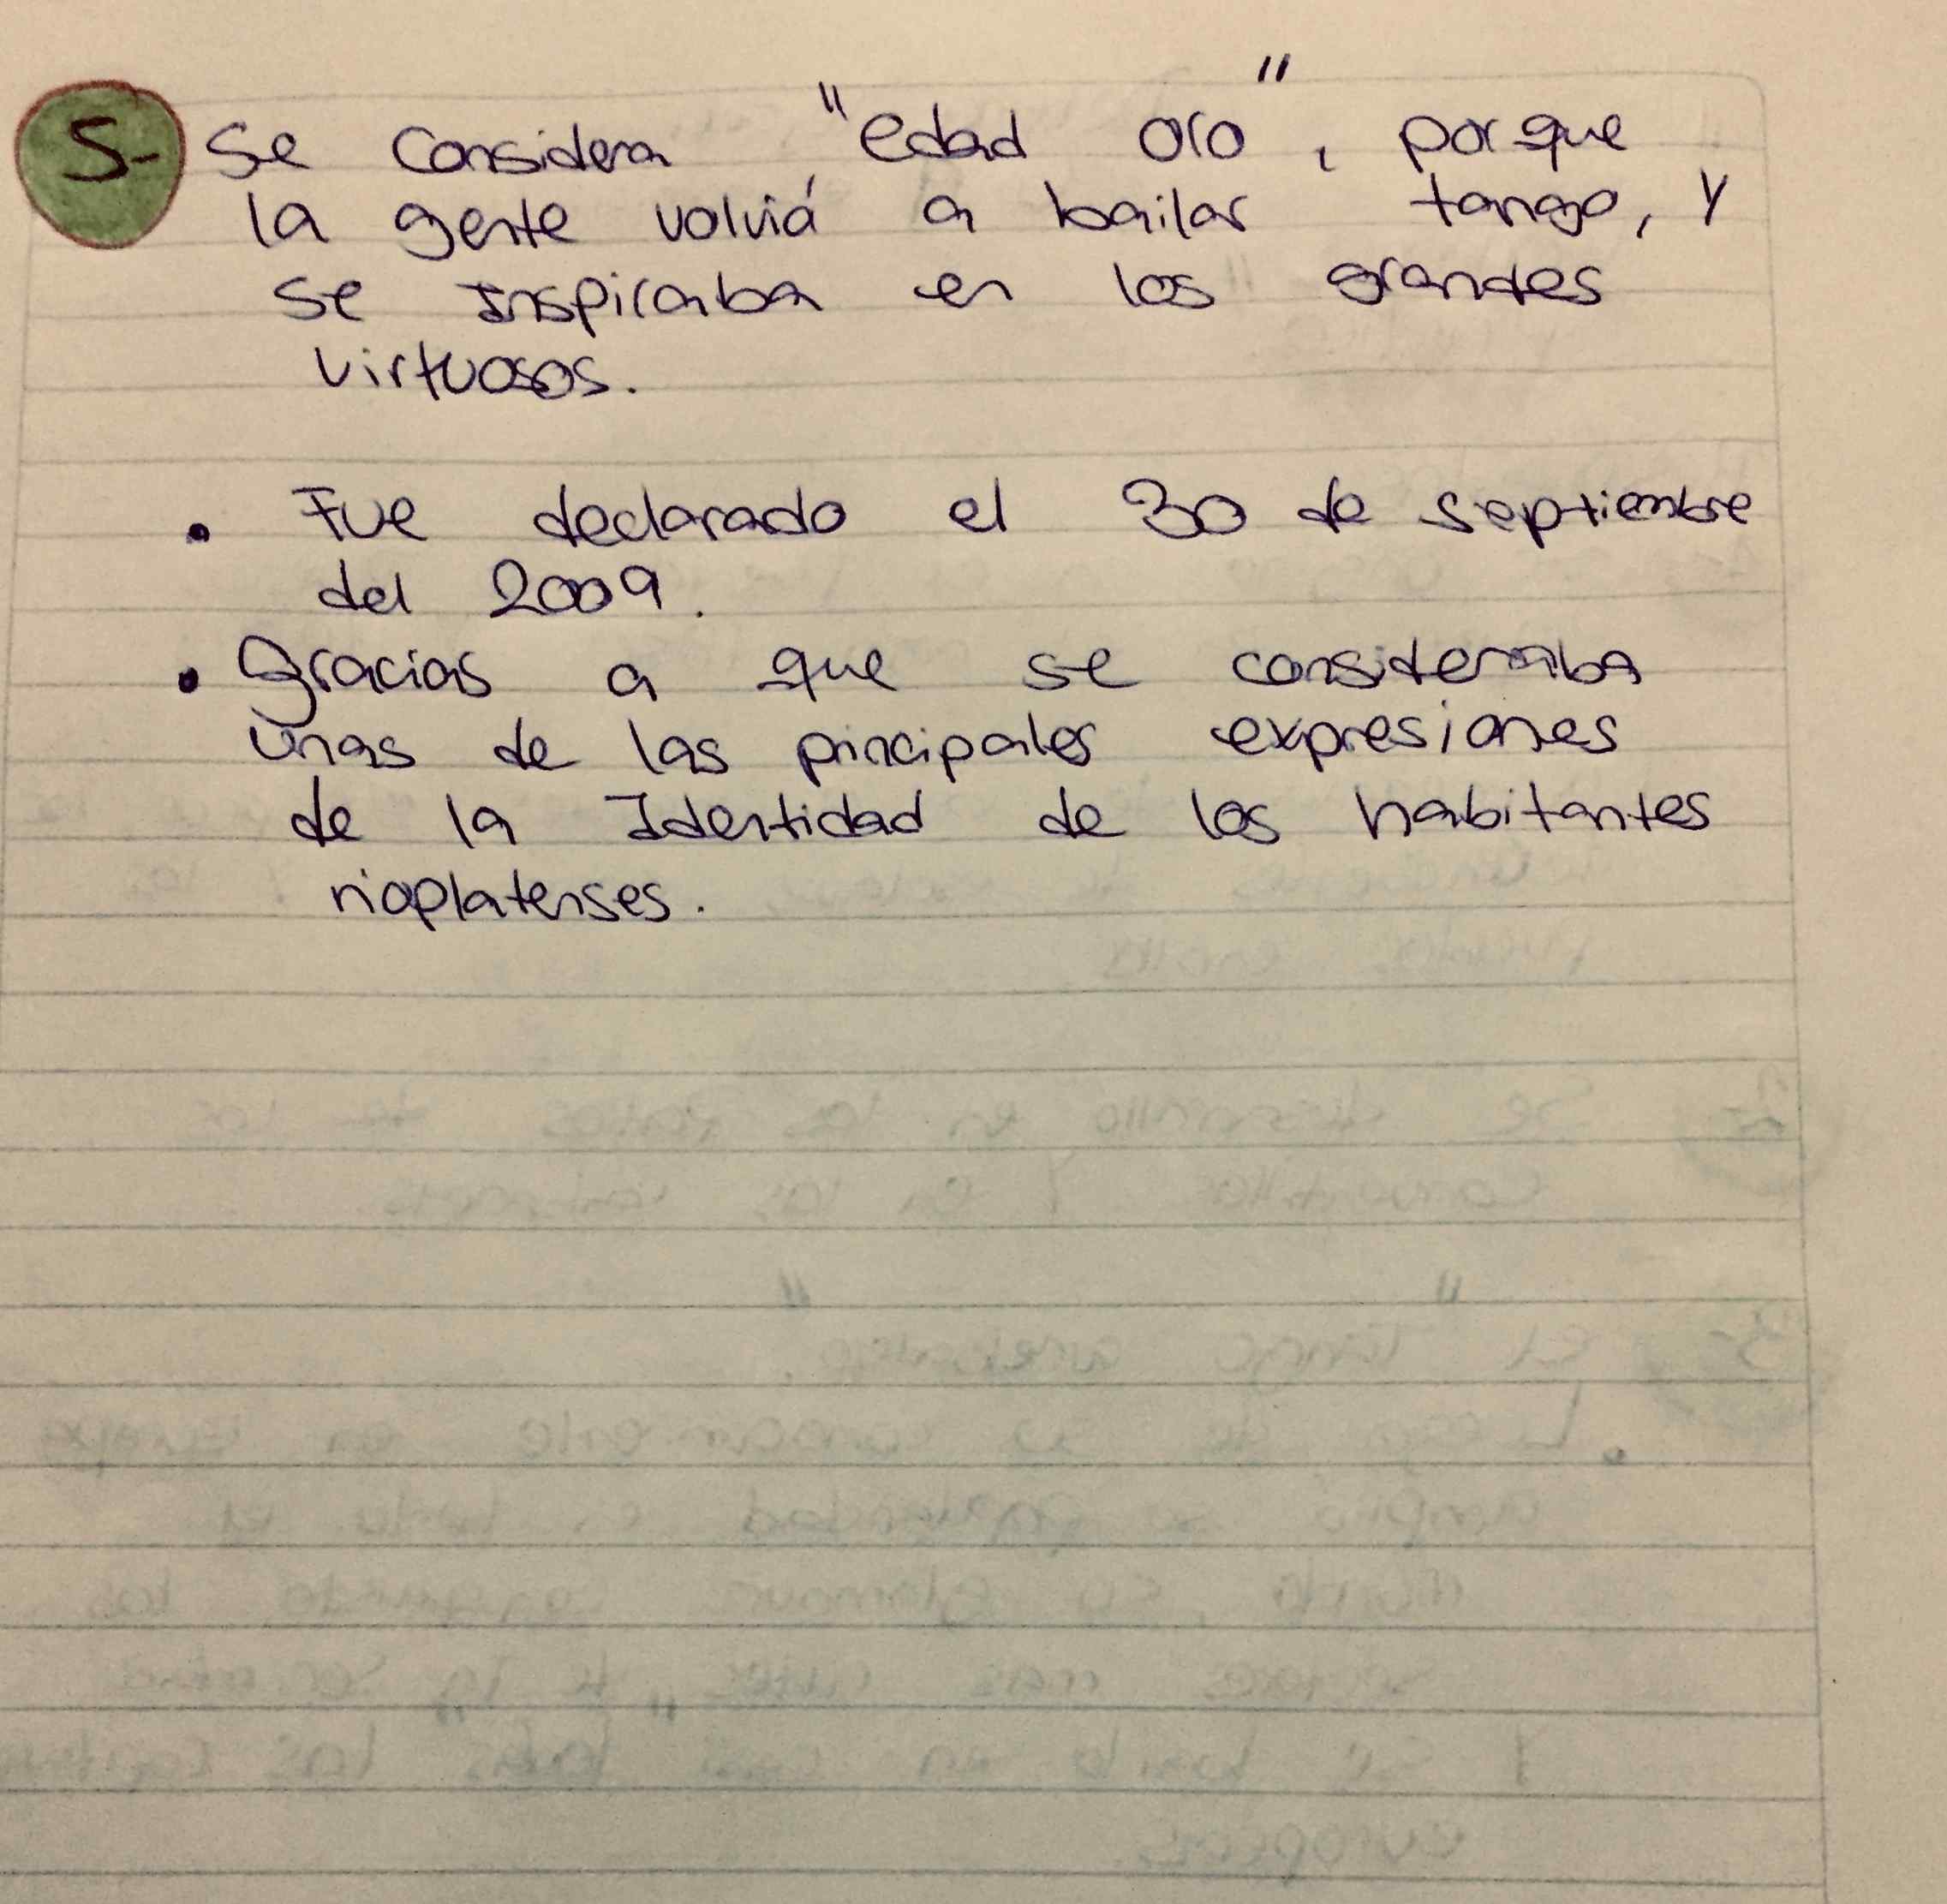 5- Se Considera "edad oro", porque
la gente volviá a bailar tango, y
se Inspiraba en los grandes
virtuosos.
• Fue declarado el 30 de septiembre
del 2009.
• Gracias a que se consideraba
unas de las principales expresiones
de la Identidad de los habitantes
rioplatenses.